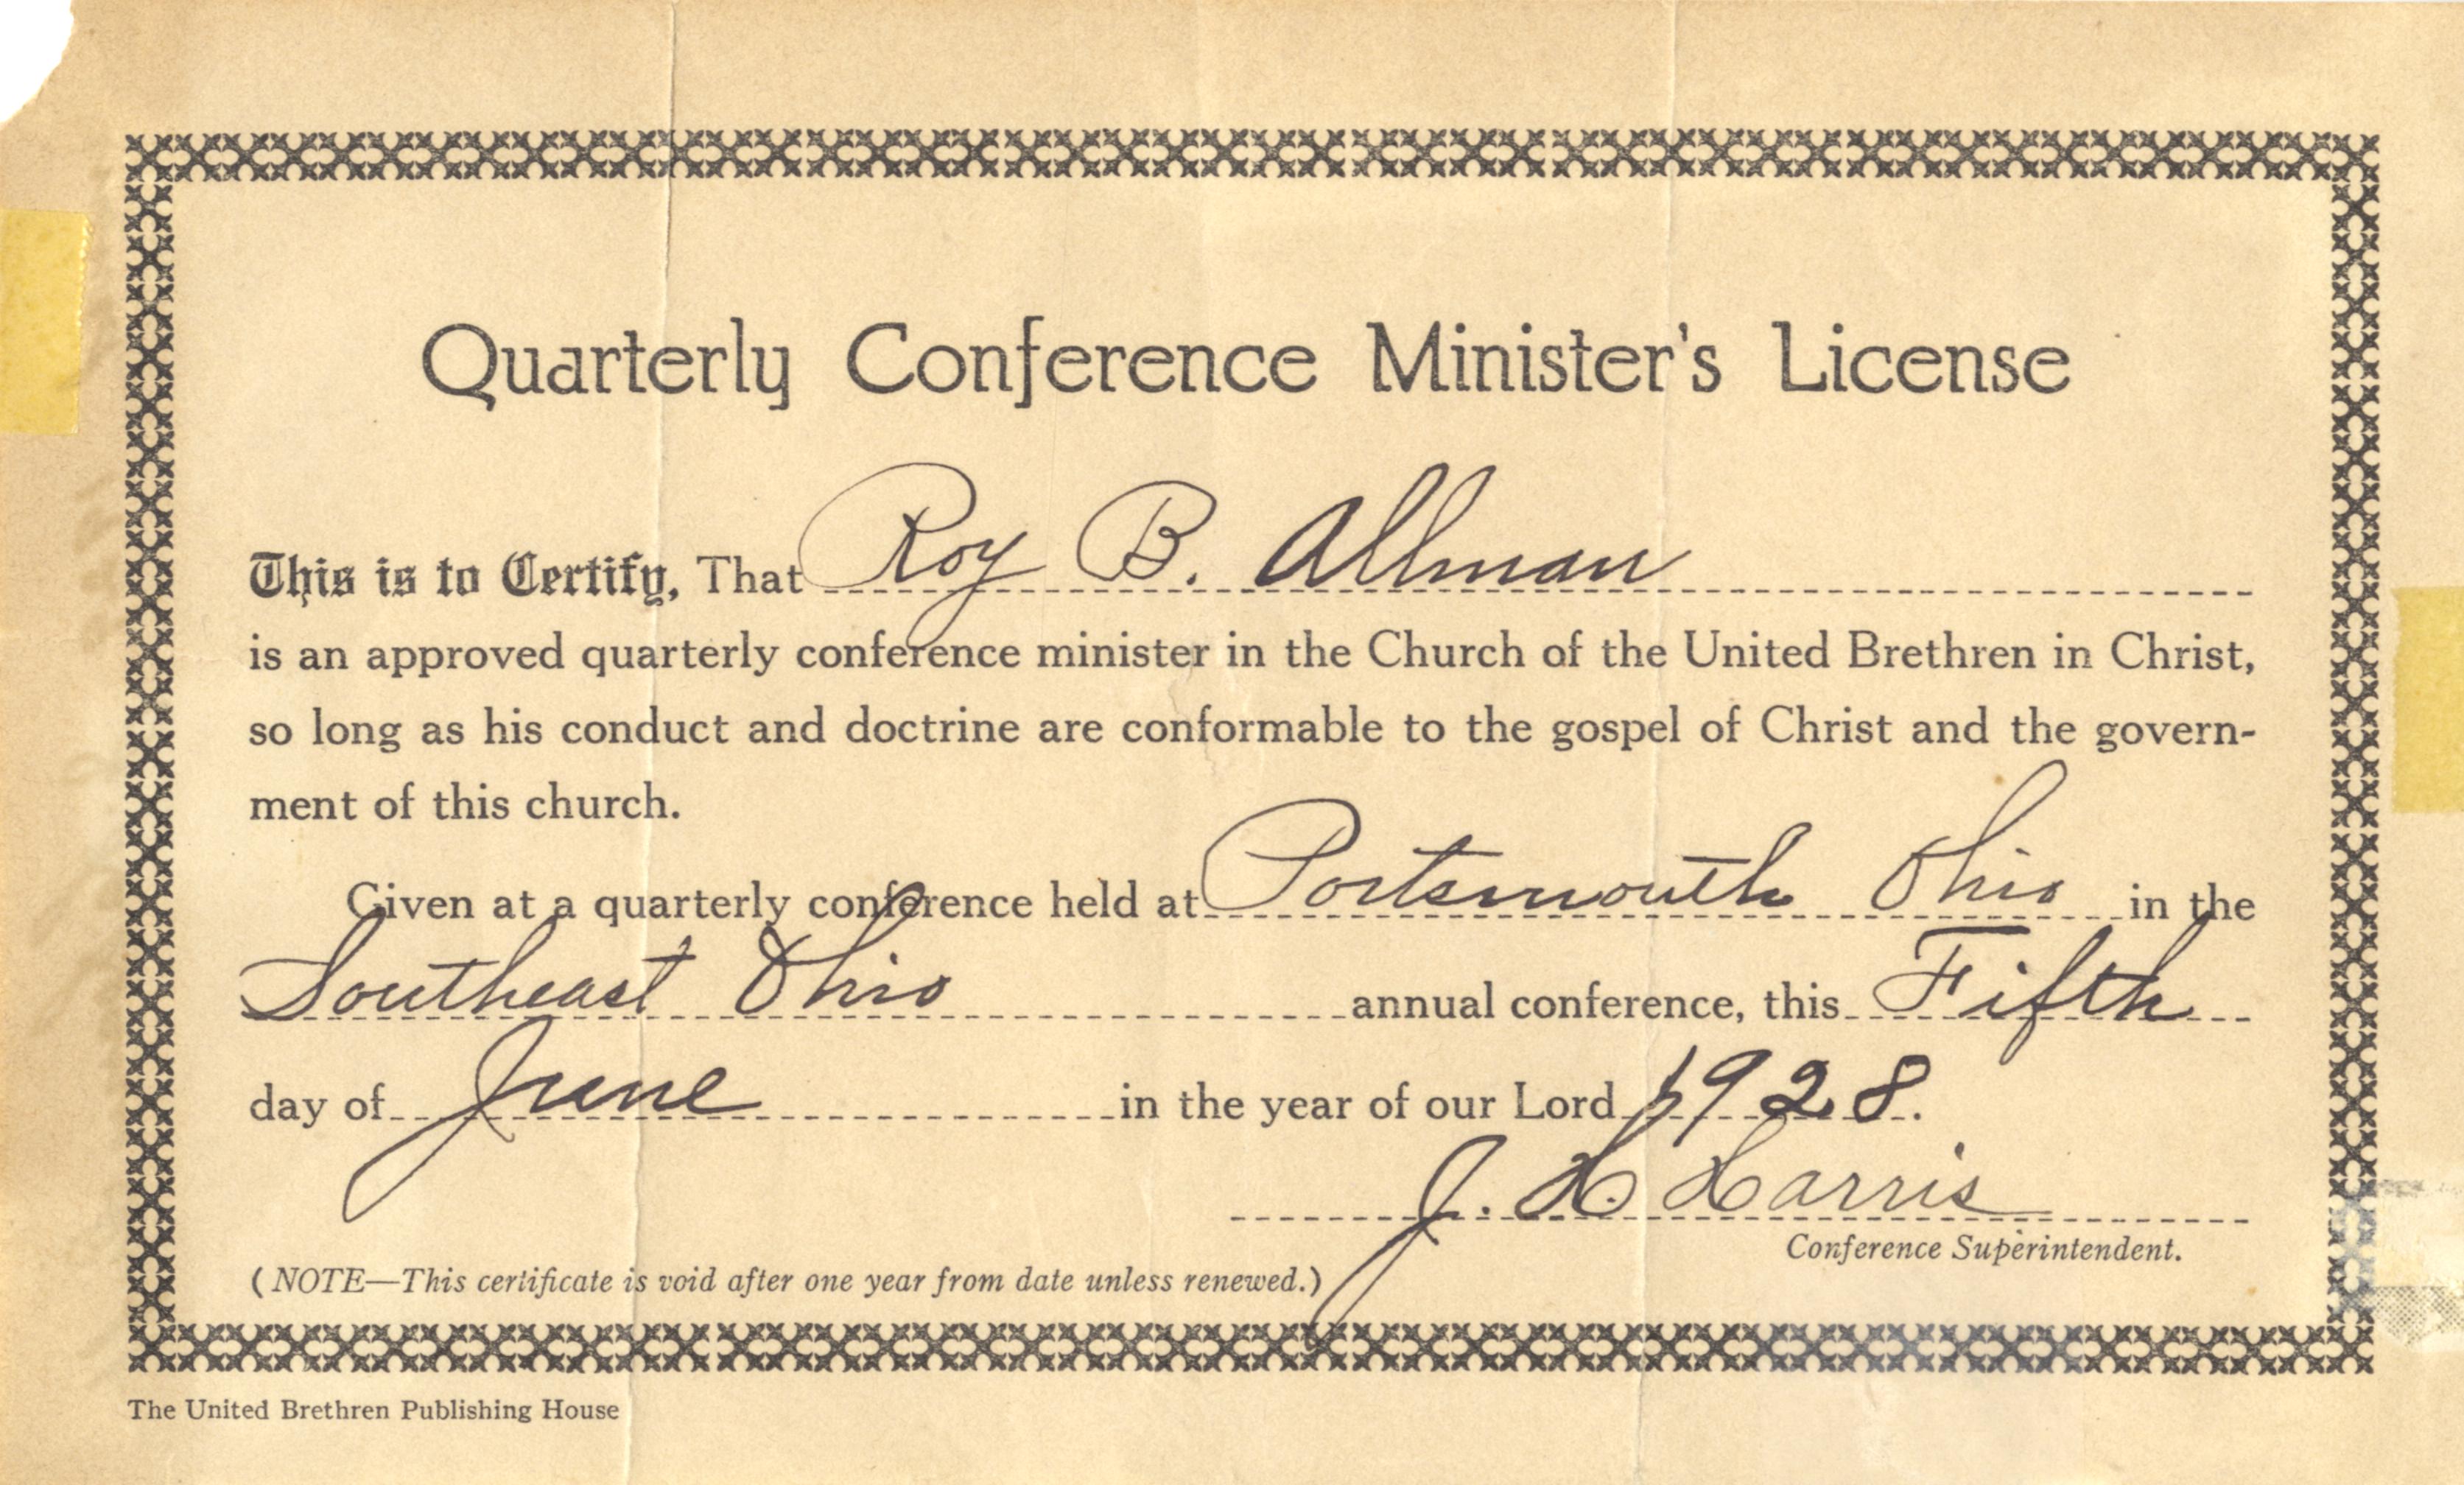 Quarterly Conference Minister's License
This is to Certify, That Roy B. Allman
is an approved quarterly conference minister in the Church of the United Brethren in Christ,
so long as his conduct and doctrine are conformable to the gospel of Christ and the govern-
ment of this church.
Given at a quarterly conference held at Portsmouth Ohio in the
Southeast Ohio annual conference, this Fifth
day of June in the year of our Lord 1928.
J. H. Harris
Conference Superintendent.
(NOTE—This certificate is void after one year from date unless renewed.)
The United Brethren Publishing House